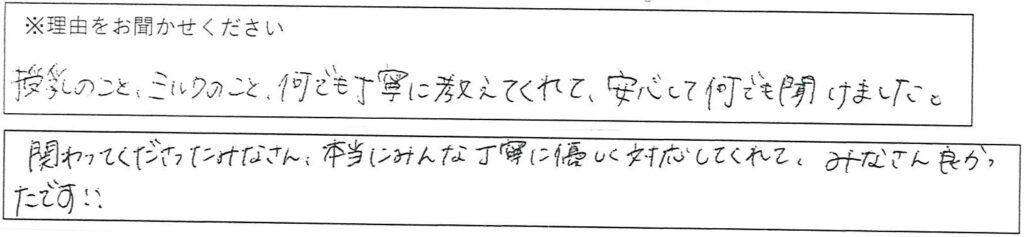 ※理由をお聞かせください
授乳のこと、ミルクのこと、何でも丁寧に教えてくれて、安心して何でも聞けました。
関わってくださったみなさん、本当にみんな丁寧に優しく対応してくれて、みなさん良かっ
たです!!